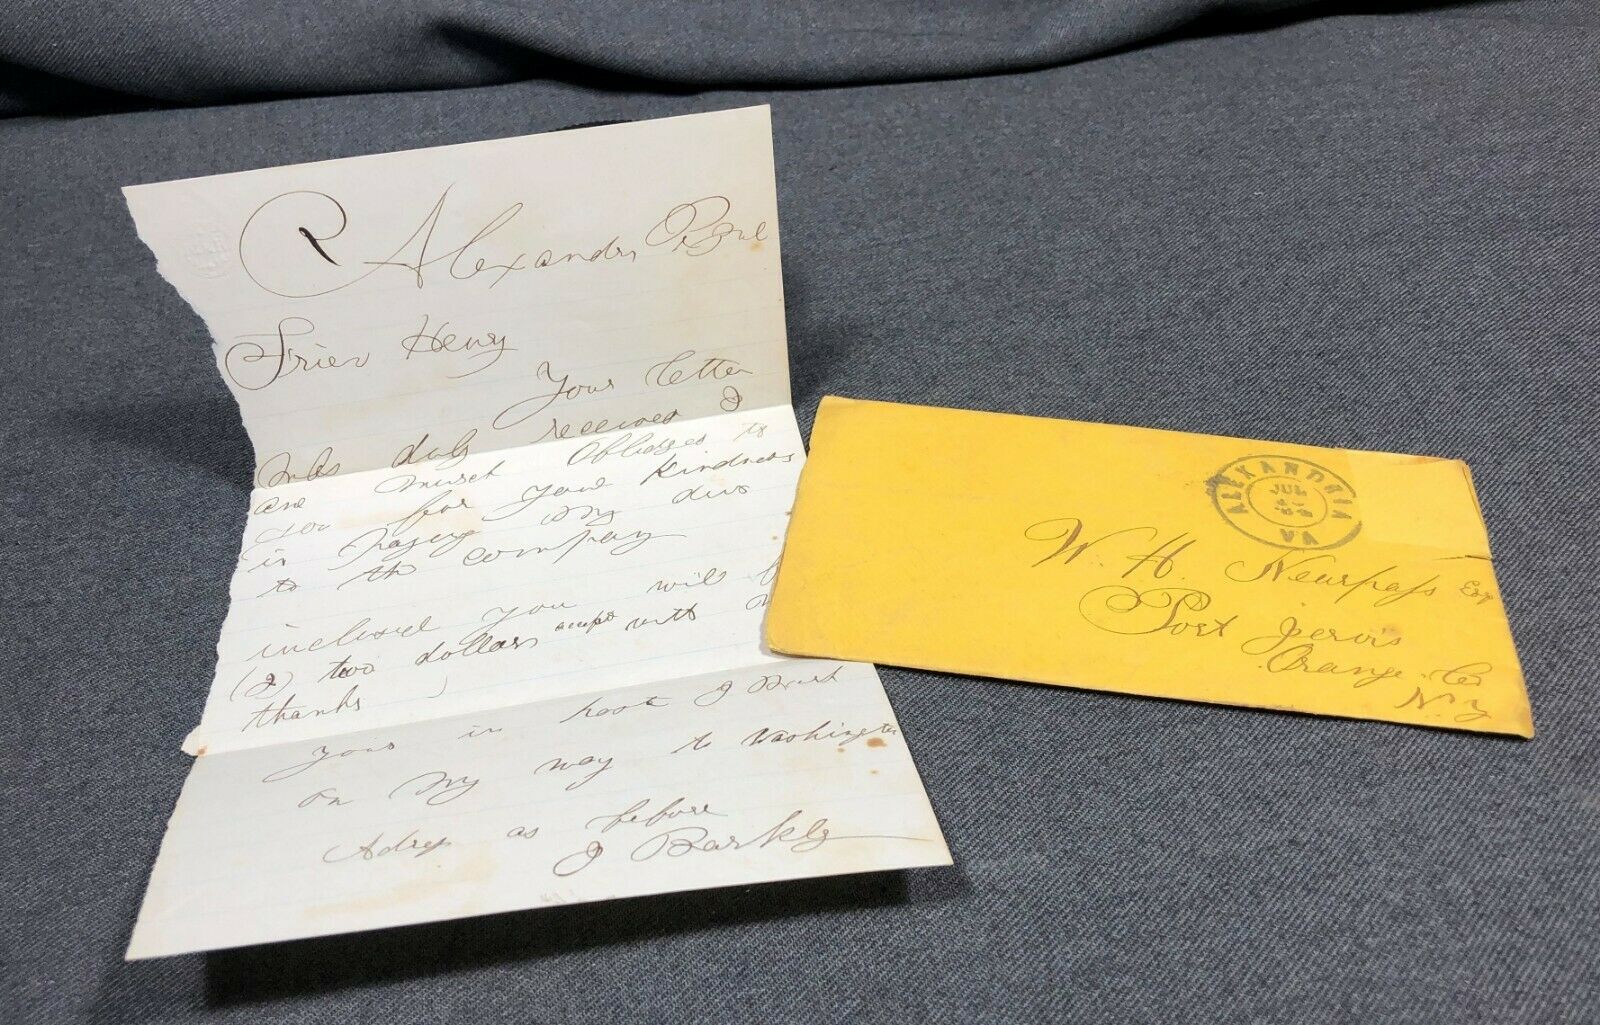 Alexandri
Frien Henry
Your letter
was duly received I
am much Obliged to
you for your kindness
in Paying my dues
to the company
inclosed you will
(2) two dollars accept with
thanks
Yours in hast I
on my way to Washington
Adress as before
J Barkly
ALEXANDRIA
JUL
VA
W. H. Newspass Esq
Port Jervis
Orange Co
N.Y